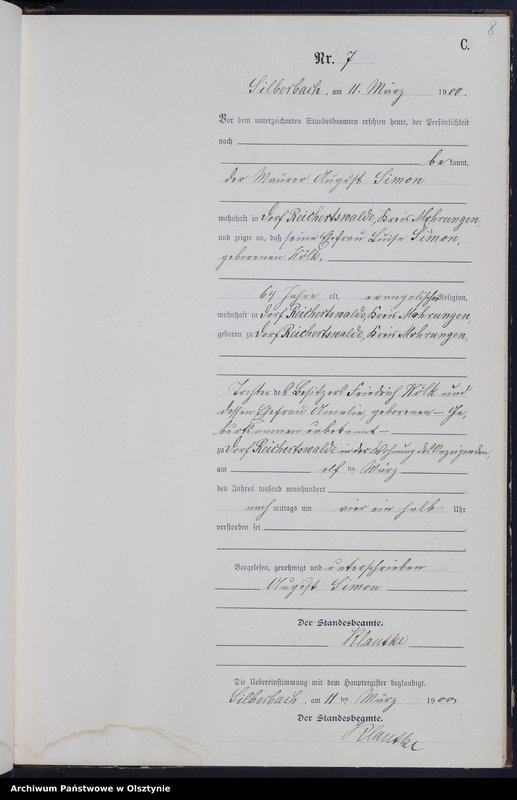 8
C.
Nr. 7
Silberbach, am 11. März 1900.
Vor dem unterzeichneten Standesbeamten erschien heute, der Persönlichkeit
nach
bekannt,
der Maurer August Simon
wohnhaft in Dorf Reichertswalde, Kreis Mohrungen,
und zeigte an, daß seine Ehefrau Luise Simon,
geborenen Wölk,
64 Jahre alt, evangelischer Religion,
wohnhaft in Dorf Reichertswalde, Kreis Mohrungen,
geboren zu Dorf Reichertswalde, Kreis Mohrungen,
Tochter des Besitzers Friedrich Wölk und
dessen Ehefrau Amalie, geborenen – Ge-
burtsnamen unbekannt –
zu Dorf Reichertswalde in der Wohnung des Anzeigenden
am elf ten März
des Jahres tausend neunhundert
nach mittags um vier ein halb Uhr
verstorben sei
Vorgelesen, genehmigt und unterschrieben
August Simon
Der Standesbeamte.
Klautke
Die Uebereinstimmung mit dem Hauptregister beglaubigt.
Silberbach, am 11 ten März 1900
Der Standesbeamte.
Klautke
Archiwum Państwowe w Olsztynie